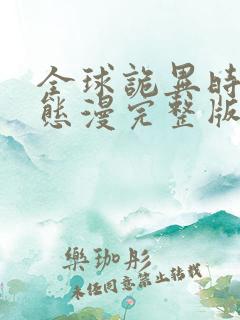 全球詭異時
態漫完整版
樂珈彤
未經同意禁止轉載